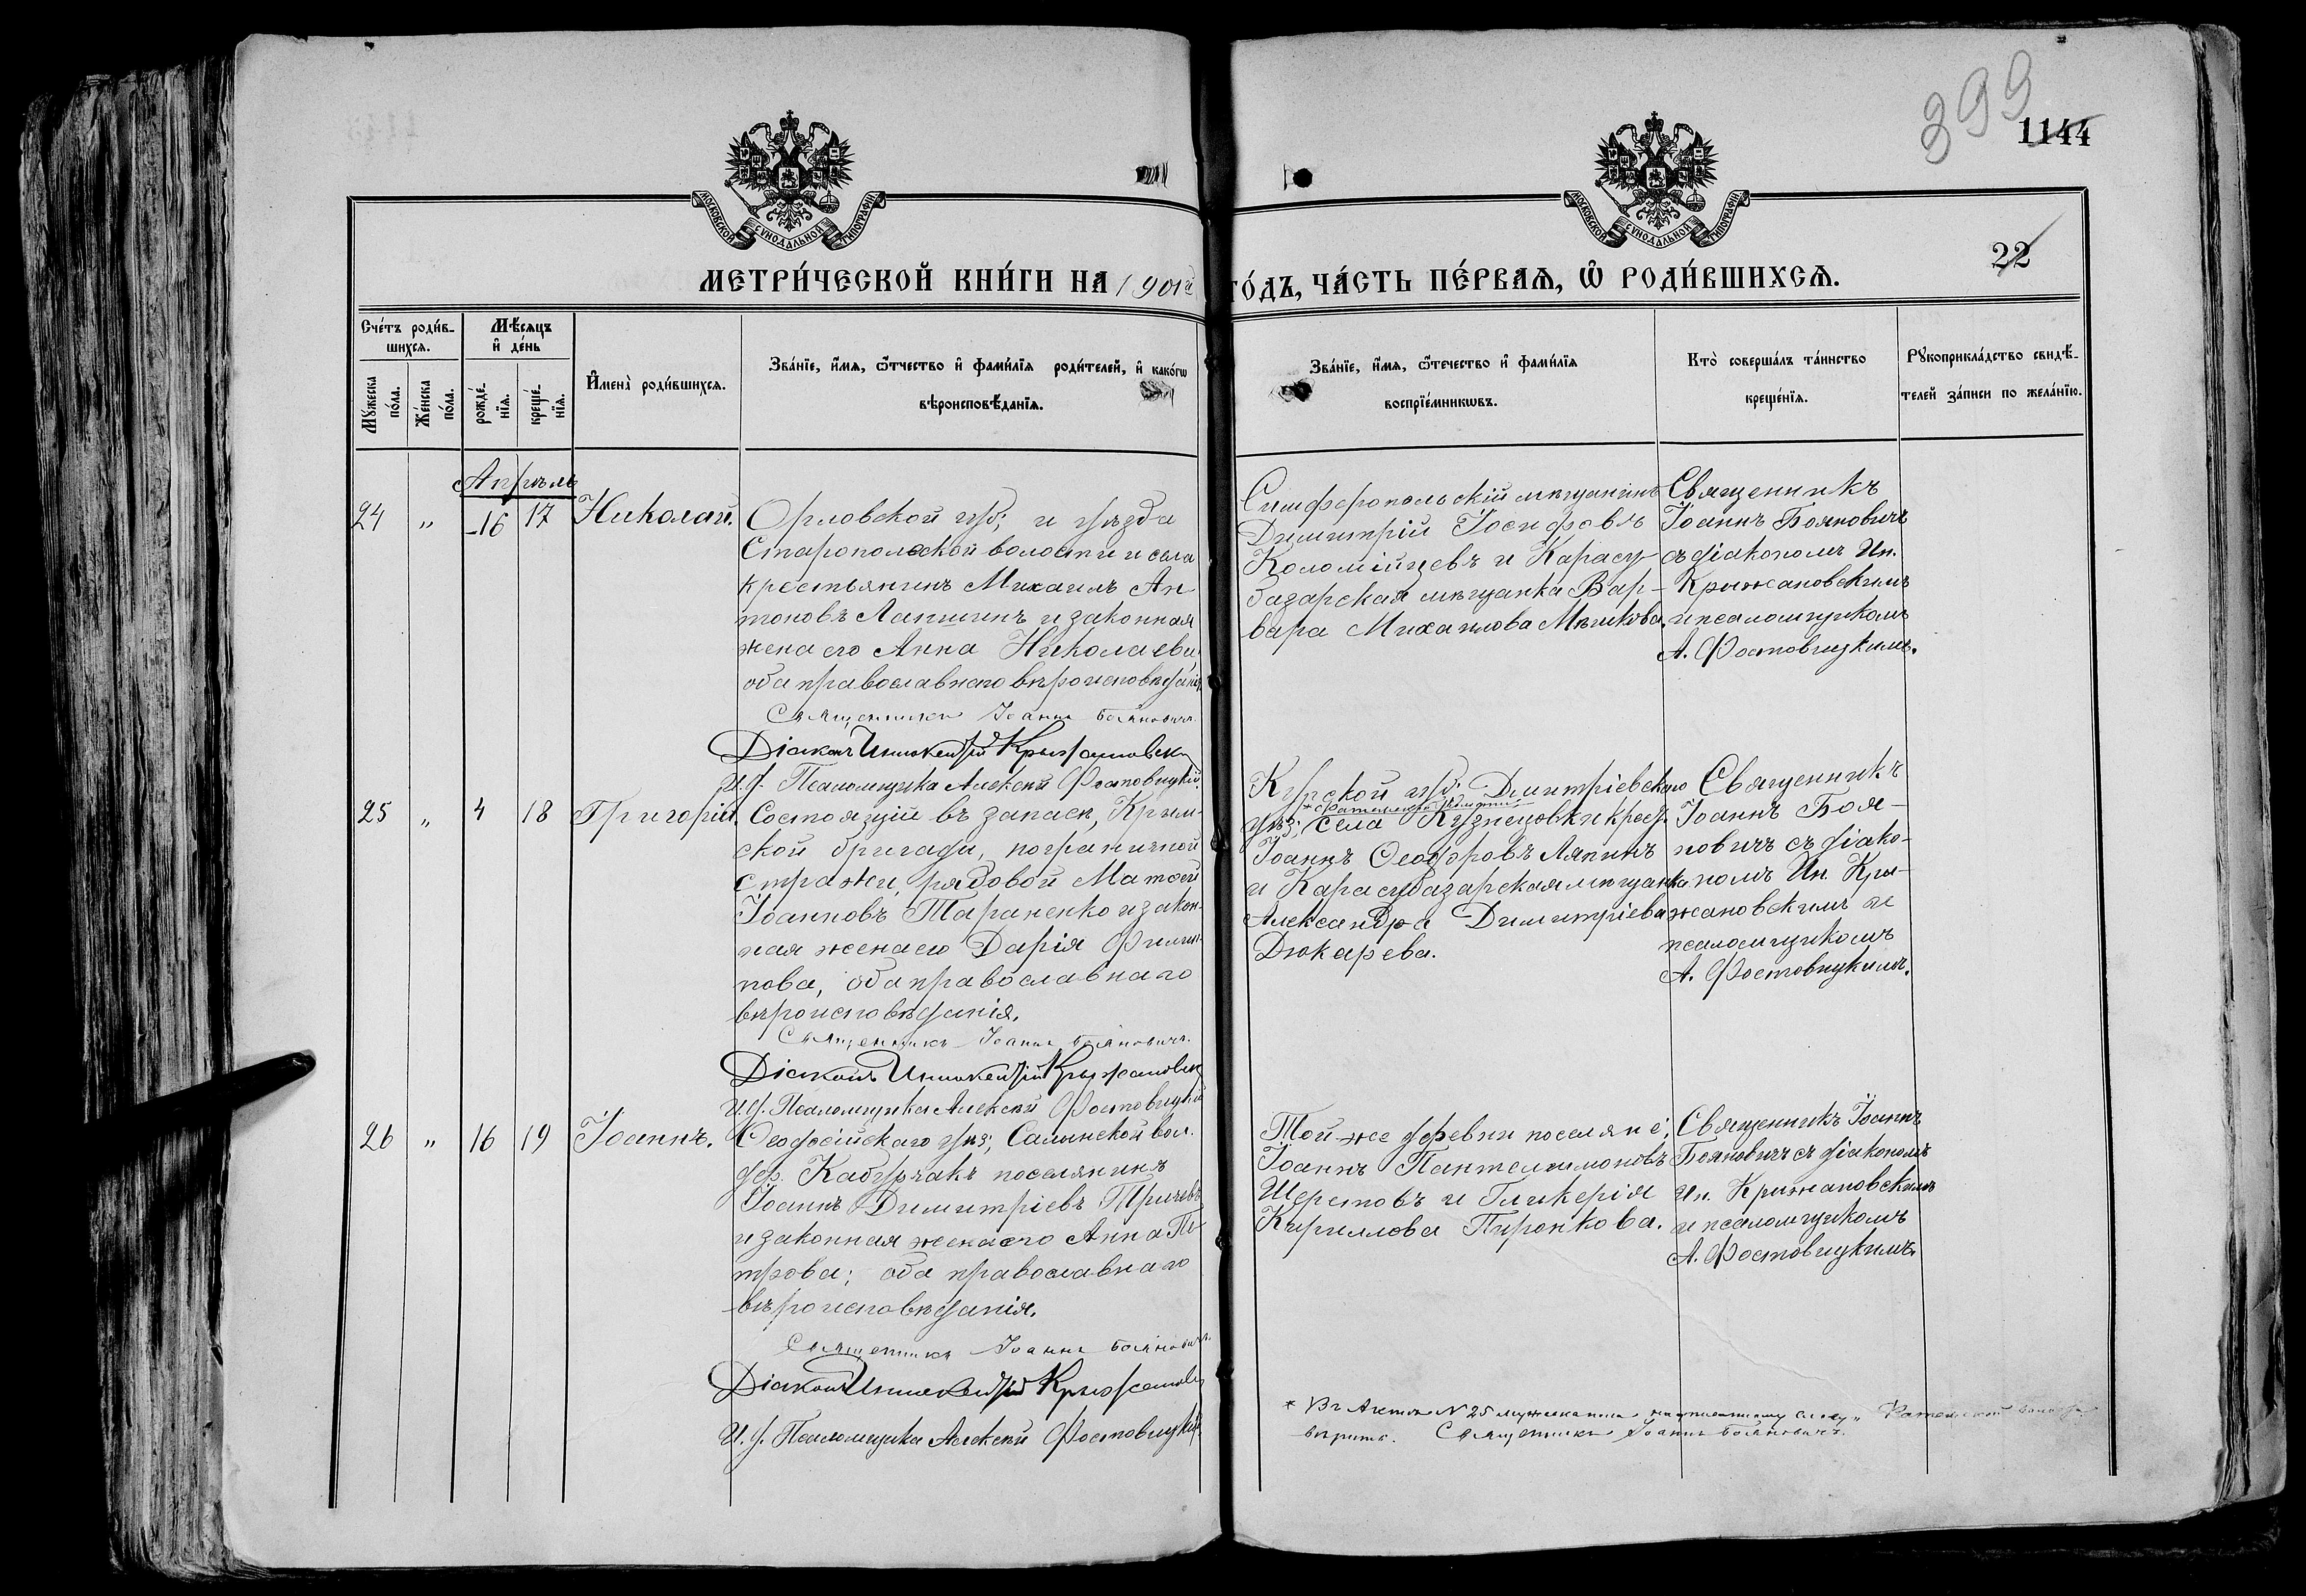 399
1144
МОСКОВСКОЙ СѴНОДАЛЬНОЙ ТИПОГРАФІИ
МОСКОВСКОЙ СѴНОДАЛЬНОЙ ТИПОГРАФІИ
22
МЕТРИ́ЧЕСКОЙ КНИ́ГИ НА 1901й ГО́ДЪ, ЧА́СТЬ ПЕ́РВАѦ, Ѽ РОДИ́ВШИХСѦ.
Сче́тъ роди́в-
шихсѧ.
Мꙋ́жеска по́ла.
Же́нска по́ла.
Мѣ́сѧцъ
и҆ де́нь
рожде́-нїѧ.
креще́-нїѧ.
И҆мена̀ роди́вшихсѧ.
Зва́нїе, и҆́мѧ, ѻ҆́тчество и҆ фами́лїѧ роди́телей, и҆ како́гѡ
вѣроисповѣ́данїѧ.
Зва́нїе, и҆́мѧ, ѻ҆́течество и҆ фами́лїѧ
воспрїе́мникѡвъ.
Кто̀ соверша́лъ та́инство
креще́нїѧ.
Рꙋкоприкла́дство свидѣ́-
телей за́писи по жела́нїю.
Апрѣль
24 „ 16 17 Николай.
Орловской губ; и уѣзда
Старопольской волости и села
крестьянинъ Михаилъ Ан
тоновъ Лапшинъ и законная
жена его Анна Николаева
оба православнаго вѣроисповѣданія
Священникъ Іоаннъ Бояновичъ.
Діаконъ Иннокентій Крыжановскій
И. д. Псаломщика Алексѣй Фостовицкій.
Симферопольскій мѣщанинъ
Димитрій Іосифовъ
Коломійцевъ и Карасу-
базарская мѣщанка Вар-
вара Михаилова Мѣшкова.
Священникъ
Іоаннъ Бояновичъ
съ діакономъ Ин.
Крыжановскимъ
и псаломщикомъ
А. Фостовицкимъ.
25 „ 4 18 Григорій.
Состоящій въ запасѣ, Крым-
ской бригады, пограничной
стражи, рядовой Матѳей
Іоанновъ Тараненко и закон-
ная жена его Дарія Филип-
пова, оба православнаго
вѣроисповѣданія.
Священникъ Іоаннъ Бояновичъ.
Діаконъ Иннокентій Крыжановскій
И. д. Псаломщика Алексѣй Фостовицкій
Курской губ; Димитріевскаго
уѣз; села Кузнецовки крест.
Іоаннъ Ѳеодоровъ Ляпинъ
и Карасубазарская мѣщанка
Александра Димитріева
Дюкарева.
Священникъ
Іоаннъ Боя-
новичъ съ діако-
номъ Ин. Кры-
жановскимъ и
псаломщикомъ
А. Фостовицкимъ.
26 „ 16 19 Іоаннъ.
Ѳеодосійскаго уѣз; Салынской вол.
дер. Кабурчакъ поселянинъ
Іоаннъ Димитріевъ
и законная жена его Анна Пе-
трова; оба православнаго
вѣроисповѣданія.
Священникъ Іоаннъ Бояновичъ.
Діаконъ Иннокентій Крыжановскій
И. д. Псаломщика Алексѣй Фостовицкій
Той-же деревни поселяне;
Іоаннъ Пантелеимоновъ
Шерстовъ и Гликерія
Кириллова Пиронкова.
Священникъ Іоаннъ
Бояновичъ съ діакономъ
Ин. Крыжановскимъ
и псаломщикомъ
А. Фостовицкимъ.
* Въ Актѣ N 25
вѣрить. Священникъ Іоаннъ Бояновичъ.